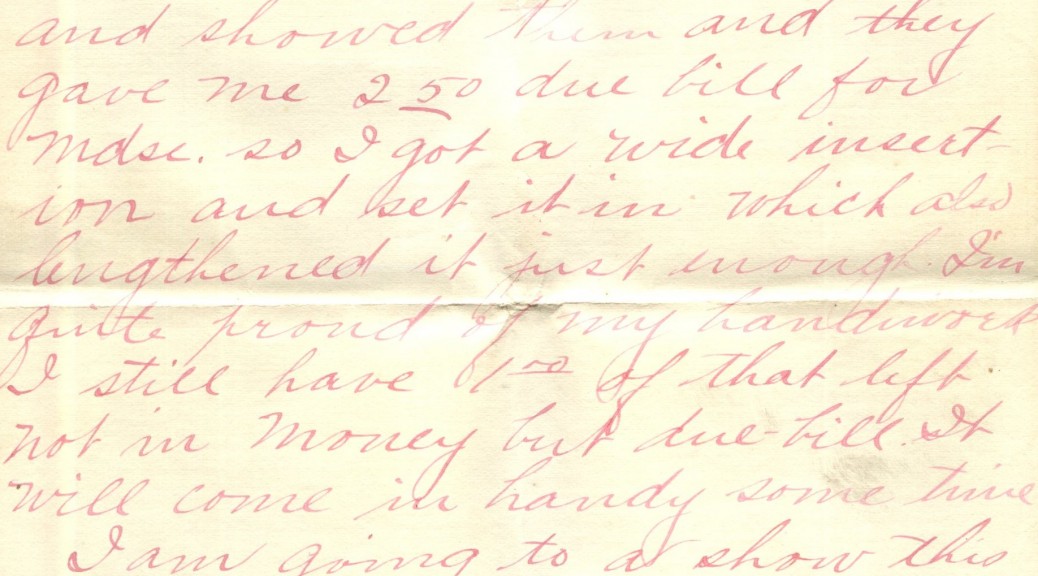 and showed them and they
gave me 2 50 due bill for
mdse. so I got a wide insert-
ion and set it in which also
lengthened it just enough. I'm
quite proud of my handiwork
I still have 1 00 of that left
not in money but due-bill. It
will come in handy some time
I am going to a show this